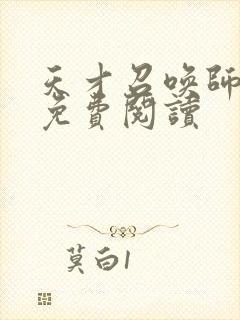 天才召喚師
免費閱讀
莫白1